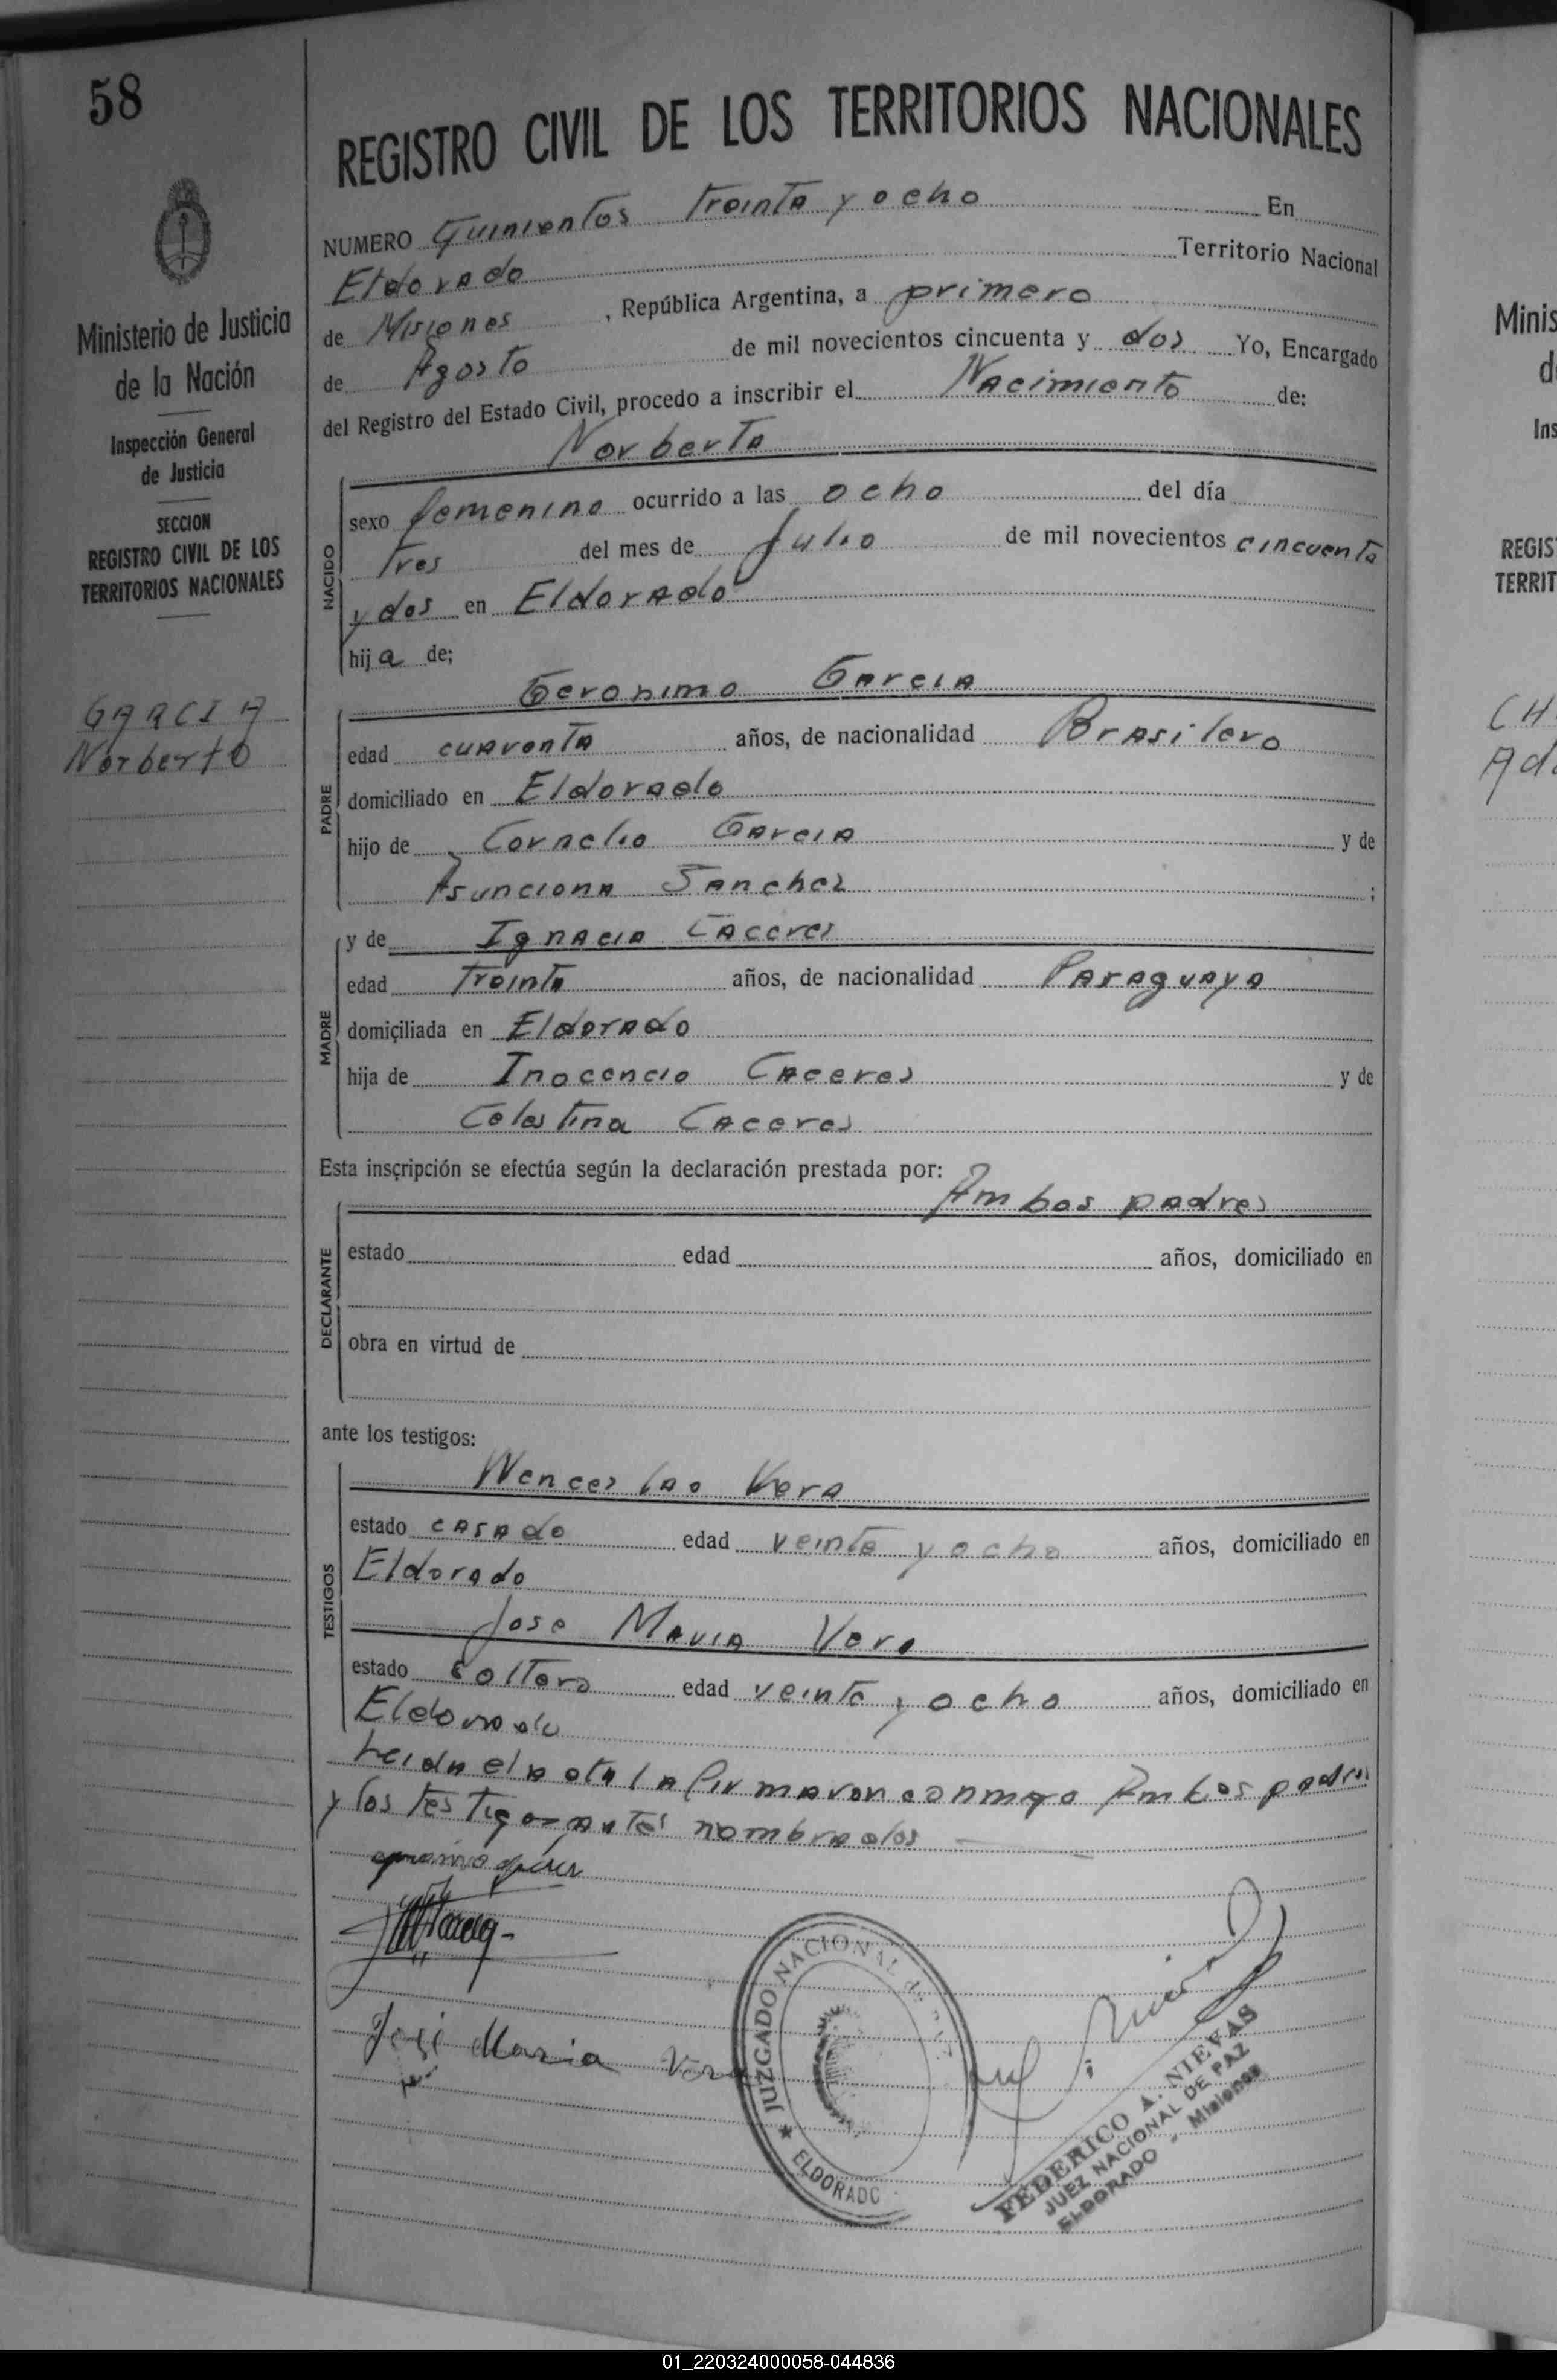 58
Ministerio de Justicia
de la Nación
Inspección General
de Justicia
SECCION
REGISTRO CIVIL DE LOS
TERRITORIOS NACIONALES
GARCIA
Norberto
REGISTRO CIVIL DE LOS TERRITORIOS NACIONALES
NUMERO Quinientos Treinta y ocho En
Eldorado Territorio Nacional
de Misiones, República Argentina, a primero
de Agosto de mil novecientos cincuenta y dos Yo, Encargado
del Registro del Estado Civil, procedo a inscribir el Nacimiento de:
Norberta
NACIDO
sexo femenino ocurrido a las ocho del día
Tres del mes de Julio de mil novecientos cincuenta
y dos en Eldorado
hija de;
Geronimo Garcia
PADRE
edad cuarenta años, de nacionalidad Brasilero
domiciliado en Eldorado
hijo de Cornelio Garcia y de
Asunciona Sanchez ;
MADRE
y de Ignacia Caceres
edad Treinta años, de nacionalidad Paraguaya
domiciliada en Eldorado
hija de Inocencio Caceres y de
Celestina Caceres
Esta inscripción se efectúa según la declaración prestada por:
Ambos padres
DECLARANTE
estado edad años, domiciliado en
obra en virtud de
ante los testigos:
TESTIGOS
Wenceslao Vera
estado casado edad veinte y ocho años, domiciliado en
Eldorado
Jose Maria Vera
estado soltero edad veinte y ocho años, domiciliado en
Eldorado
Leida el acta la firmaron conmigo Ambos padres
y los testigos antes nombrados
José Maria Vera
JUZGADO NACIONAL DE PAZ
★ ELDORADO
FEDERICO A. NIEVAS
JUEZ NACIONAL DE PAZ
ELDORADO - Misiones
Minis
d
Ins
REGIS
TERRIT
CH
Ad
01_220324000058-044836